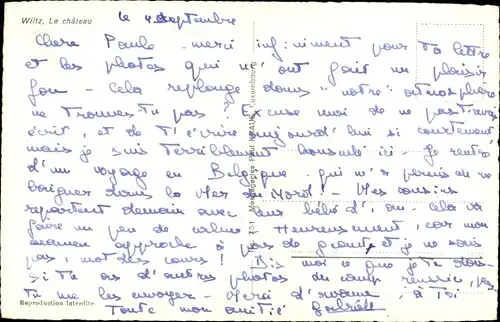 Wiltz, Le château
le 4 septembre
Chère Paule - merci infiniment pour ta lettre
et les photos qui m'ont fait un plaisir
fou - cela replonge dans "notre" atmosphère
ne trouves-tu pas? Excuse moi de ne pas t'avoir
écrit, et de t'écrire aujourd'hui si courtement
mais je suis terriblement bousculée ici - Je rentre
d'un voyage en Belgique - qui m'a permis de me
baigner dans la Mer du Nord! - Mes cousins
repartent demain avec leur bébé d'1 an - cela va
faire un peu de calme - Heureusement, car mon
examen approche à pas de géant et je ne sais
pas, mot des cours! Dis moi ce que je te dois
si tu as d'autres photos du camp réussies,
tu me les envoyes - Merci d'avance, à toi
Toute mon amitié Gabrielle
Reproduction interdite
Messageries Paul KRAUS, Luxembourg